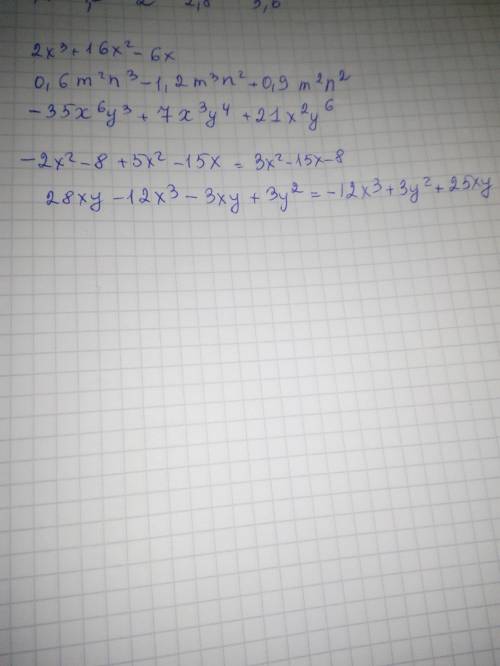 2x³ + 16x² - 6x
0,6 m²n³ - 1,2 m³n² + 0,9 m²n²
-35x⁶y³ + 7x³y⁴ + 21x²y⁶
-2x² - 8 + 5x² - 15x = 3x² - 15x - 8
28xy - 12x³ - 3xy + 3y² = -12x³ + 3y² + 25xy